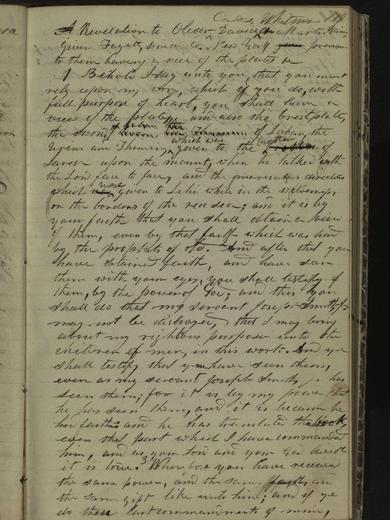 A Revelation to Oliver David & Martin
given Fayett, seneca Co. New York previous
to them having a view of the plates &c
1 Behold I say unto you, that you must
rely upon my word, which if you do, with
full purpose of heart, you shall have a
view of the plates, and also the brestplate,
the sword of Laban, the
Urim and Thumim, which was given to the brother of
Jared upon the mount, when he talked with
the Lord face to face, and the marvelous directors
which was given to Lehi while in the wilderness,
on the borders of the red sea; and it is by
your faith that you shall obtain a view
of them, even by that faith which was had
by the prophets of old. And after that you
have obtained faith, and have seen
them with your eyes, you shall testify of
them, by the power of God; and this you
shall do that my servant Joseph Smith Jr
may not be destroyed, that I may bring
about my righteous purposes unto the
children of men, in this work. And ye
shall testify that you have seen them,
even as my servant Joseph Smith Jr has
seen them, for it is by my power that
he has seen them, and it is because he
has faith: and he has translated the book,
even that part which I have commanded
him, and as your Lord and your God liveth
it is true. 3 Wherefore you have received
the same power, and the same faith, and
the same gift like unto him; and if ye
do these last commandments of mine,